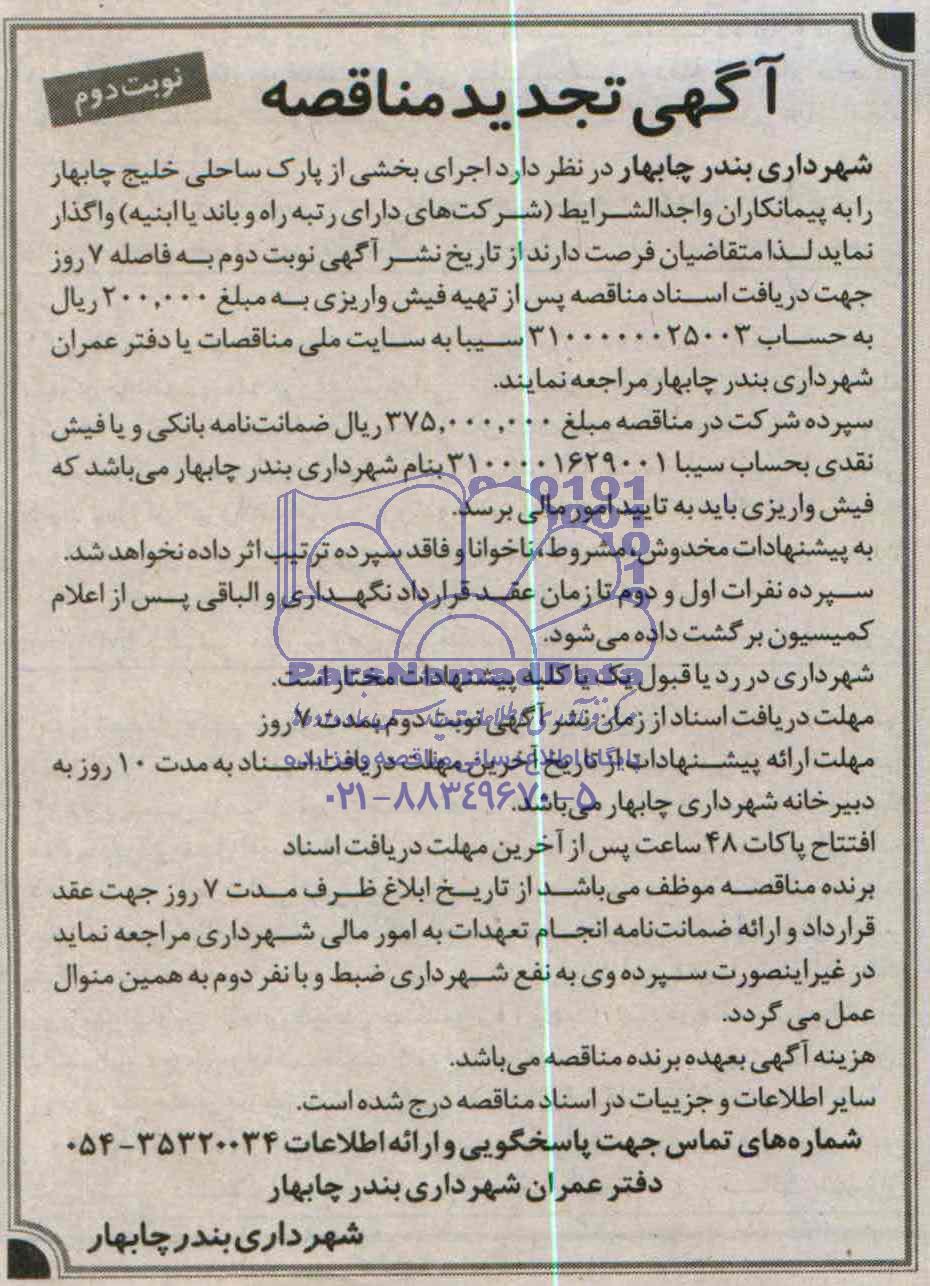 آگهی تجدید مناقصه
نوبت دوم
شهرداری بندر چابهار در نظر دارد اجرای بخشی از پارک ساحلی خلیج چابهار
را به پیمانکاران واجدالشرایط (شرکت‌های دارای رتبه راه و باند یا ابنیه) واگذار
نماید لذا متقاضیان فرصت دارند از تاریخ نشر آگهی نوبت دوم به فاصله ۷ روز
جهت دریافت اسناد مناقصه پس از تهیه فیش واریزی به مبلغ ۲۰۰,۰۰۰ ریال
به حساب ۳۱۰۰۰۰۰۰۲۵۰۰۳ سیبا به سایت ملی مناقصات یا دفتر عمران
شهرداری بندر چابهار مراجعه نمایند.
سپرده شرکت در مناقصه مبلغ ۳۷۵,۰۰۰,۰۰۰ ریال ضمانت‌نامه بانکی و یا فیش
نقدی بحساب سیبا ۳۱۰۰۰۰۱۶۲۹۰۰۱ بنام شهرداری بندر چابهار می‌باشد که
فیش واریزی باید به تایید امور مالی برسد.
به پیشنهادات مخدوش، مشروط، ناخوانا و فاقد سپرده ترتیب اثر داده نخواهد شد.
سپرده نفرات اول و دوم تا زمان عقد قرارداد نگهداری و الباقی پس از اعلام
کمیسیون برگشت داده می‌شود.
شهرداری در رد یا قبول یک یا کلیه پیشنهادات مختار است.
مهلت دریافت اسناد از زمان نشر آگهی نوبت دوم بمدت ۷ روز
مهلت ارائه پیشنهادات از تاریخ آخرین مهلت دریافت اسناد به مدت ۱۰ روز به
دبیرخانه شهرداری چابهار می‌باشد.
افتتاح پاکات ۴۸ ساعت پس از آخرین مهلت دریافت اسناد
برنده مناقصه موظف می‌باشد از تاریخ ابلاغ ظرف مدت ۷ روز جهت عقد
قرارداد و ارائه ضمانت‌نامه انجام تعهدات به امور مالی شهرداری مراجعه نماید
در غیراینصورت سپرده وی به نفع شهرداری ضبط و با نفر دوم به همین منوال
عمل می گردد.
هزینه آگهی بعهده برنده مناقصه می‌باشد.
سایر اطلاعات و جزییات در اسناد مناقصه درج شده است.
شماره‌های تماس جهت پاسخگویی و ارائه اطلاعات ۳۵۳۲۰۰۳۴-۰۵۴
دفتر عمران شهرداری بندر چابهار
شهرداری بندر چابهار
ParsNamadData
پایگاه اطلاع رسانی مناقصه و مزایده
۰۲۱-۸۸۳۴۹۶۷۰-۵